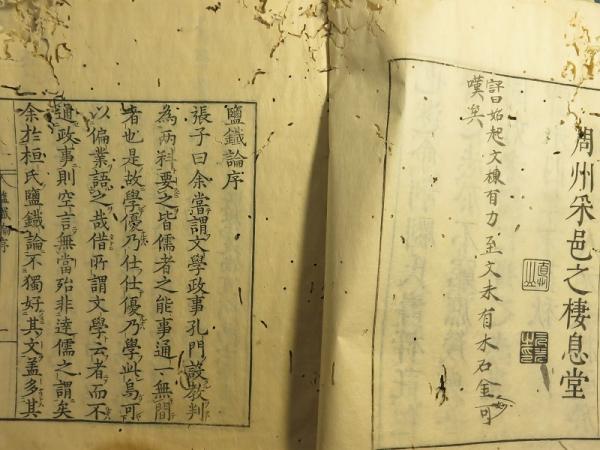 周州采邑之棲息堂
評曰始起文棟有力至文末有木石金可
嘆矣
鹽鐵論序
張子曰余嘗謂文學政事孔門設教判
為兩科要之皆儒者之能事通一無間
者也是故學優乃仕仕優乃學此烏可
以偏業語之哉借所謂文學云者而不
適政事則空言無當殆非達儒之謂矣
余於桓氏鹽鐵論不獨好其文蓋多其
鹽鐵論序